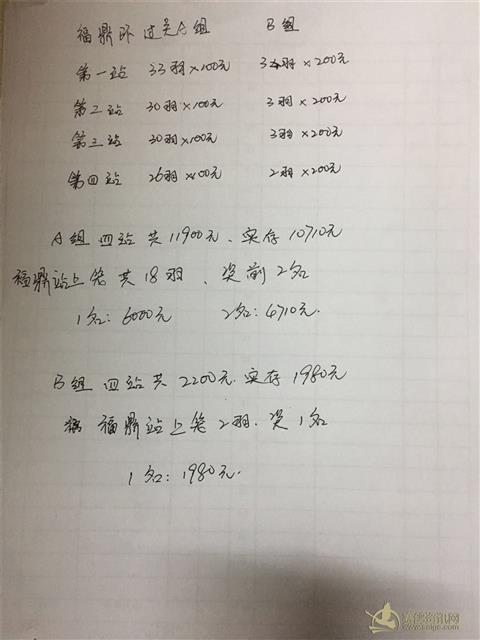 福鼎环过关A组 B组
第一站 33羽×100元 3羽×200元
第二站 30羽×100元 3羽×200元
第三站 30羽×100元 3羽×200元
第四站 26羽×100元 2羽×200元
A组四站共11900元、实存10710元
福鼎站上笼共18羽、奖前2名
1名:6000元 2名:4710元.
B组四站共2200元.实存1980元
福鼎站上笼2羽.奖1名
1名:1980元.
www.saige.com